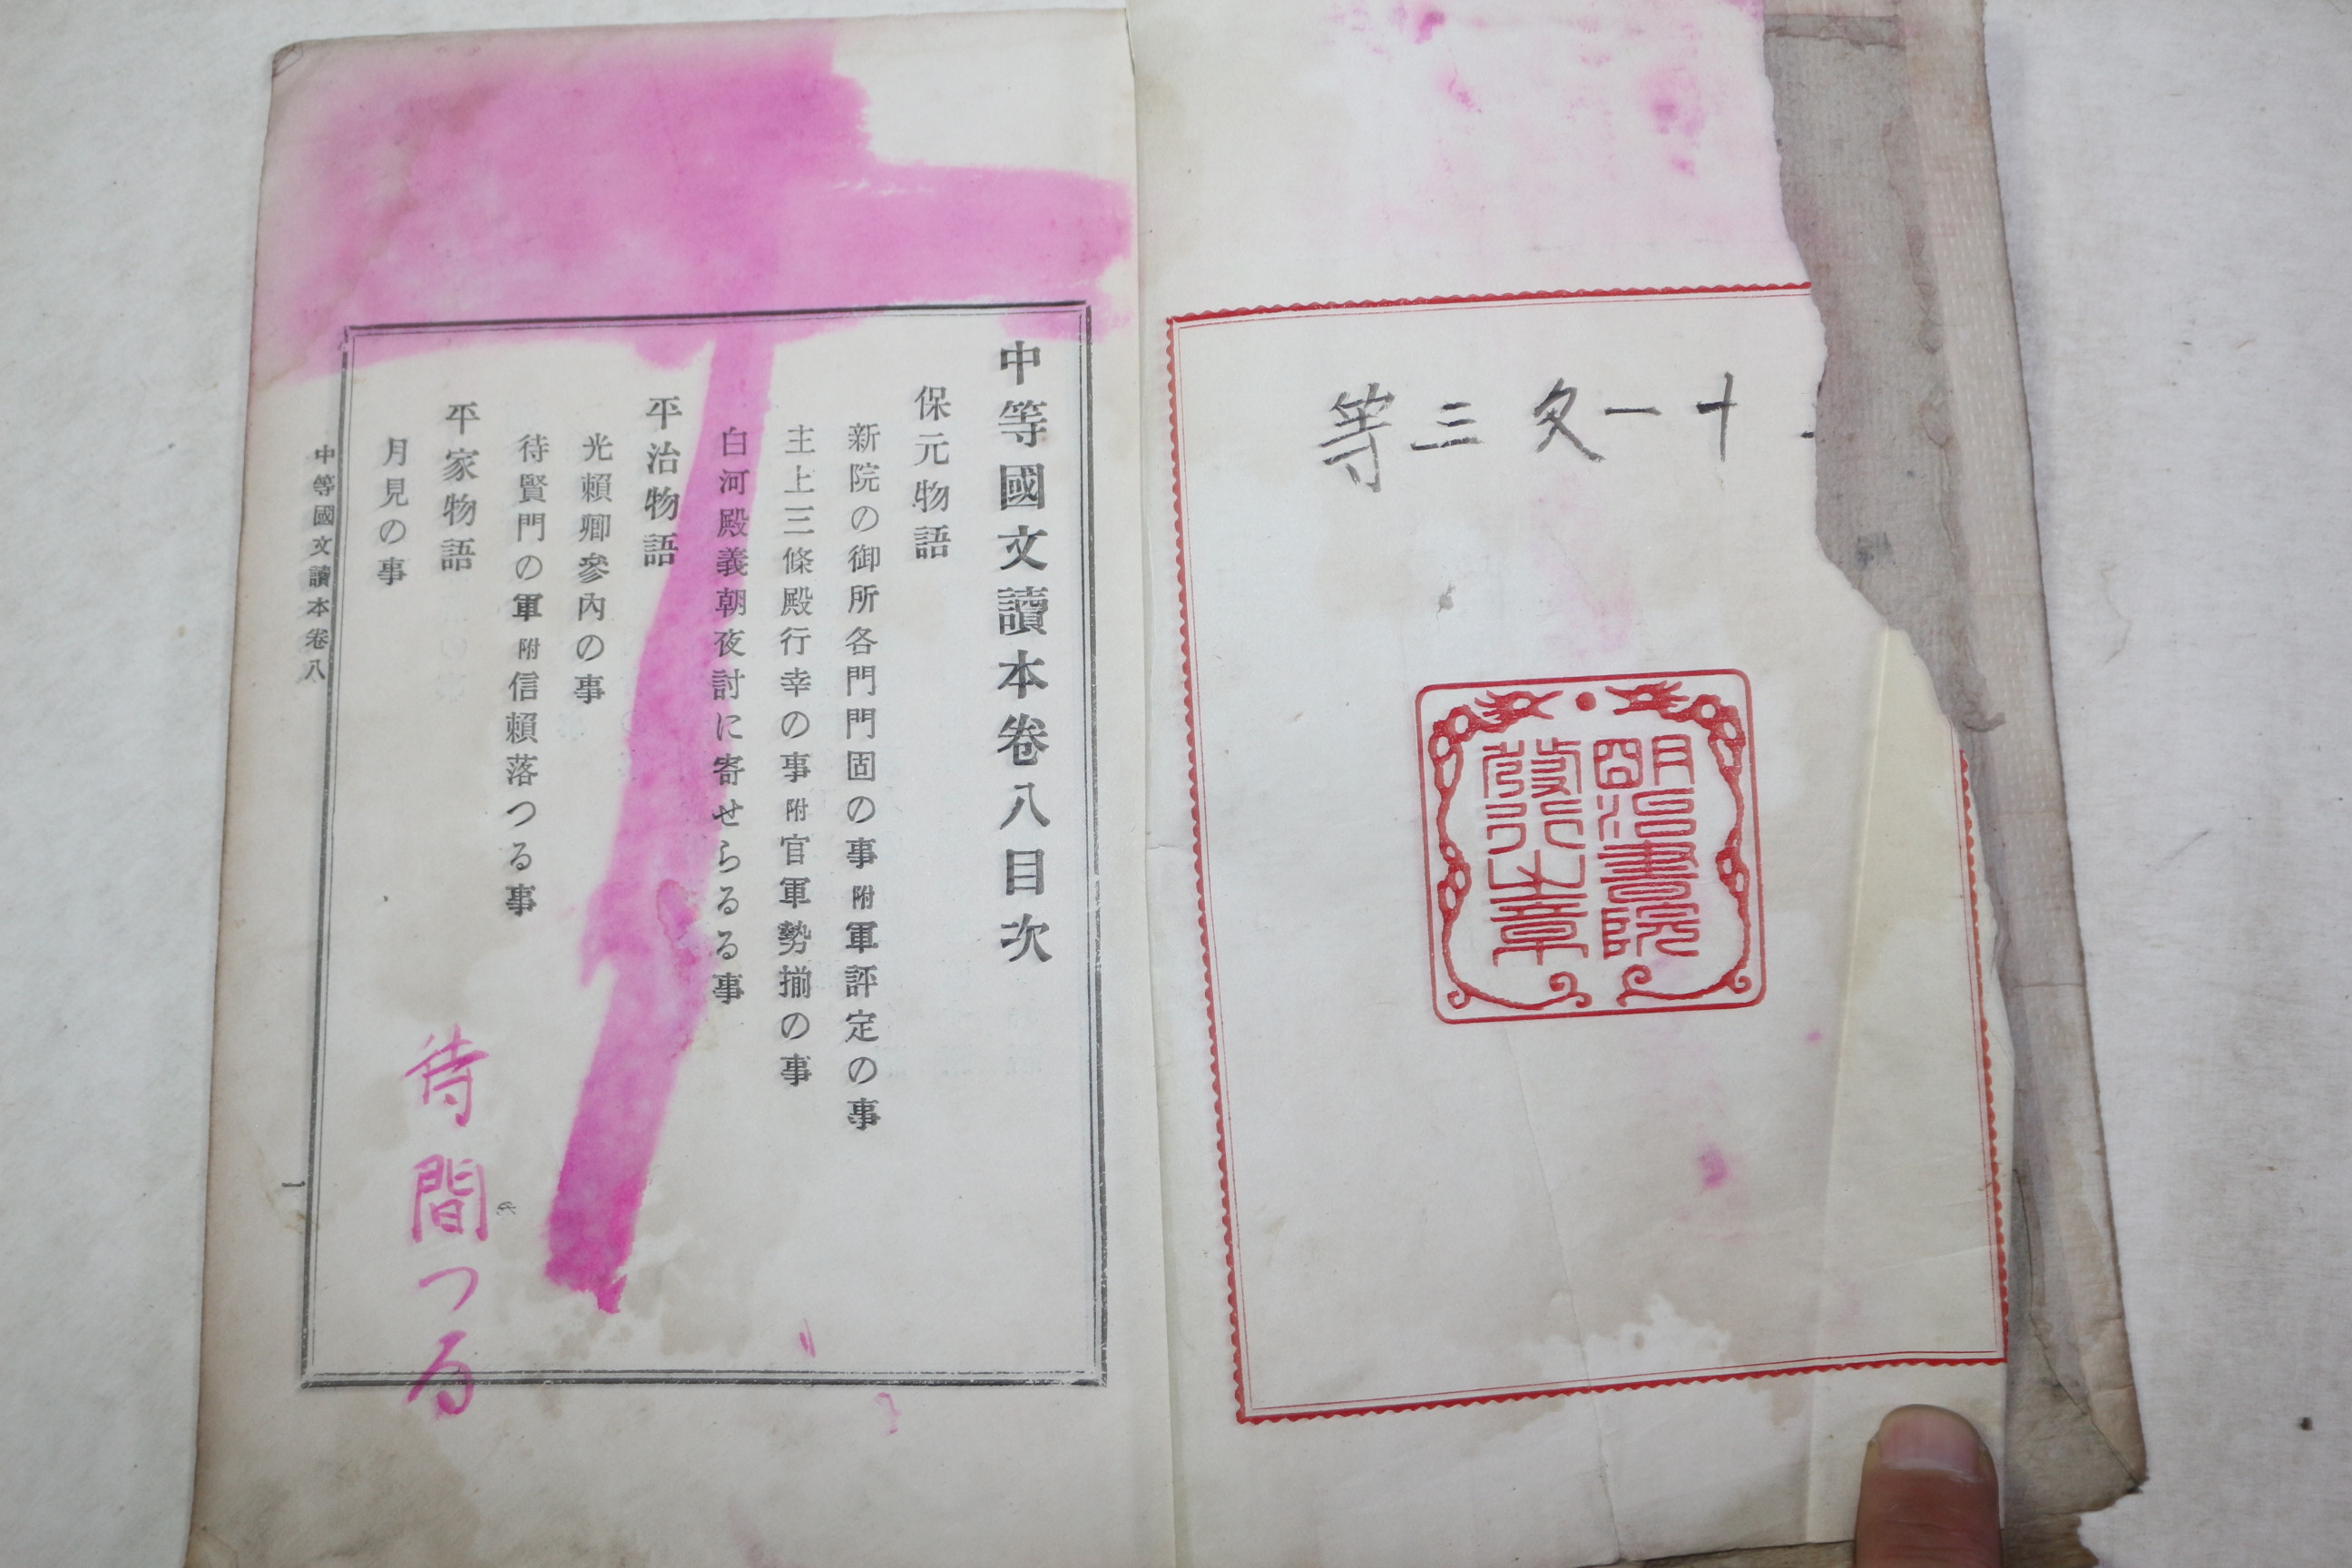 十一文三等
明治書院
發行之章
中等國文讀本卷八目次
保元物語
新院の御所各門門固の事附軍評定の事
主上三條殿行幸の事附官軍勢揃の事
白河殿義朝夜討に寄せらるる事
平治物語
光賴卿參內の事
待賢門の軍附信賴落つる事
平家物語
月見の事
待間つる
中等國文讀本卷八
一